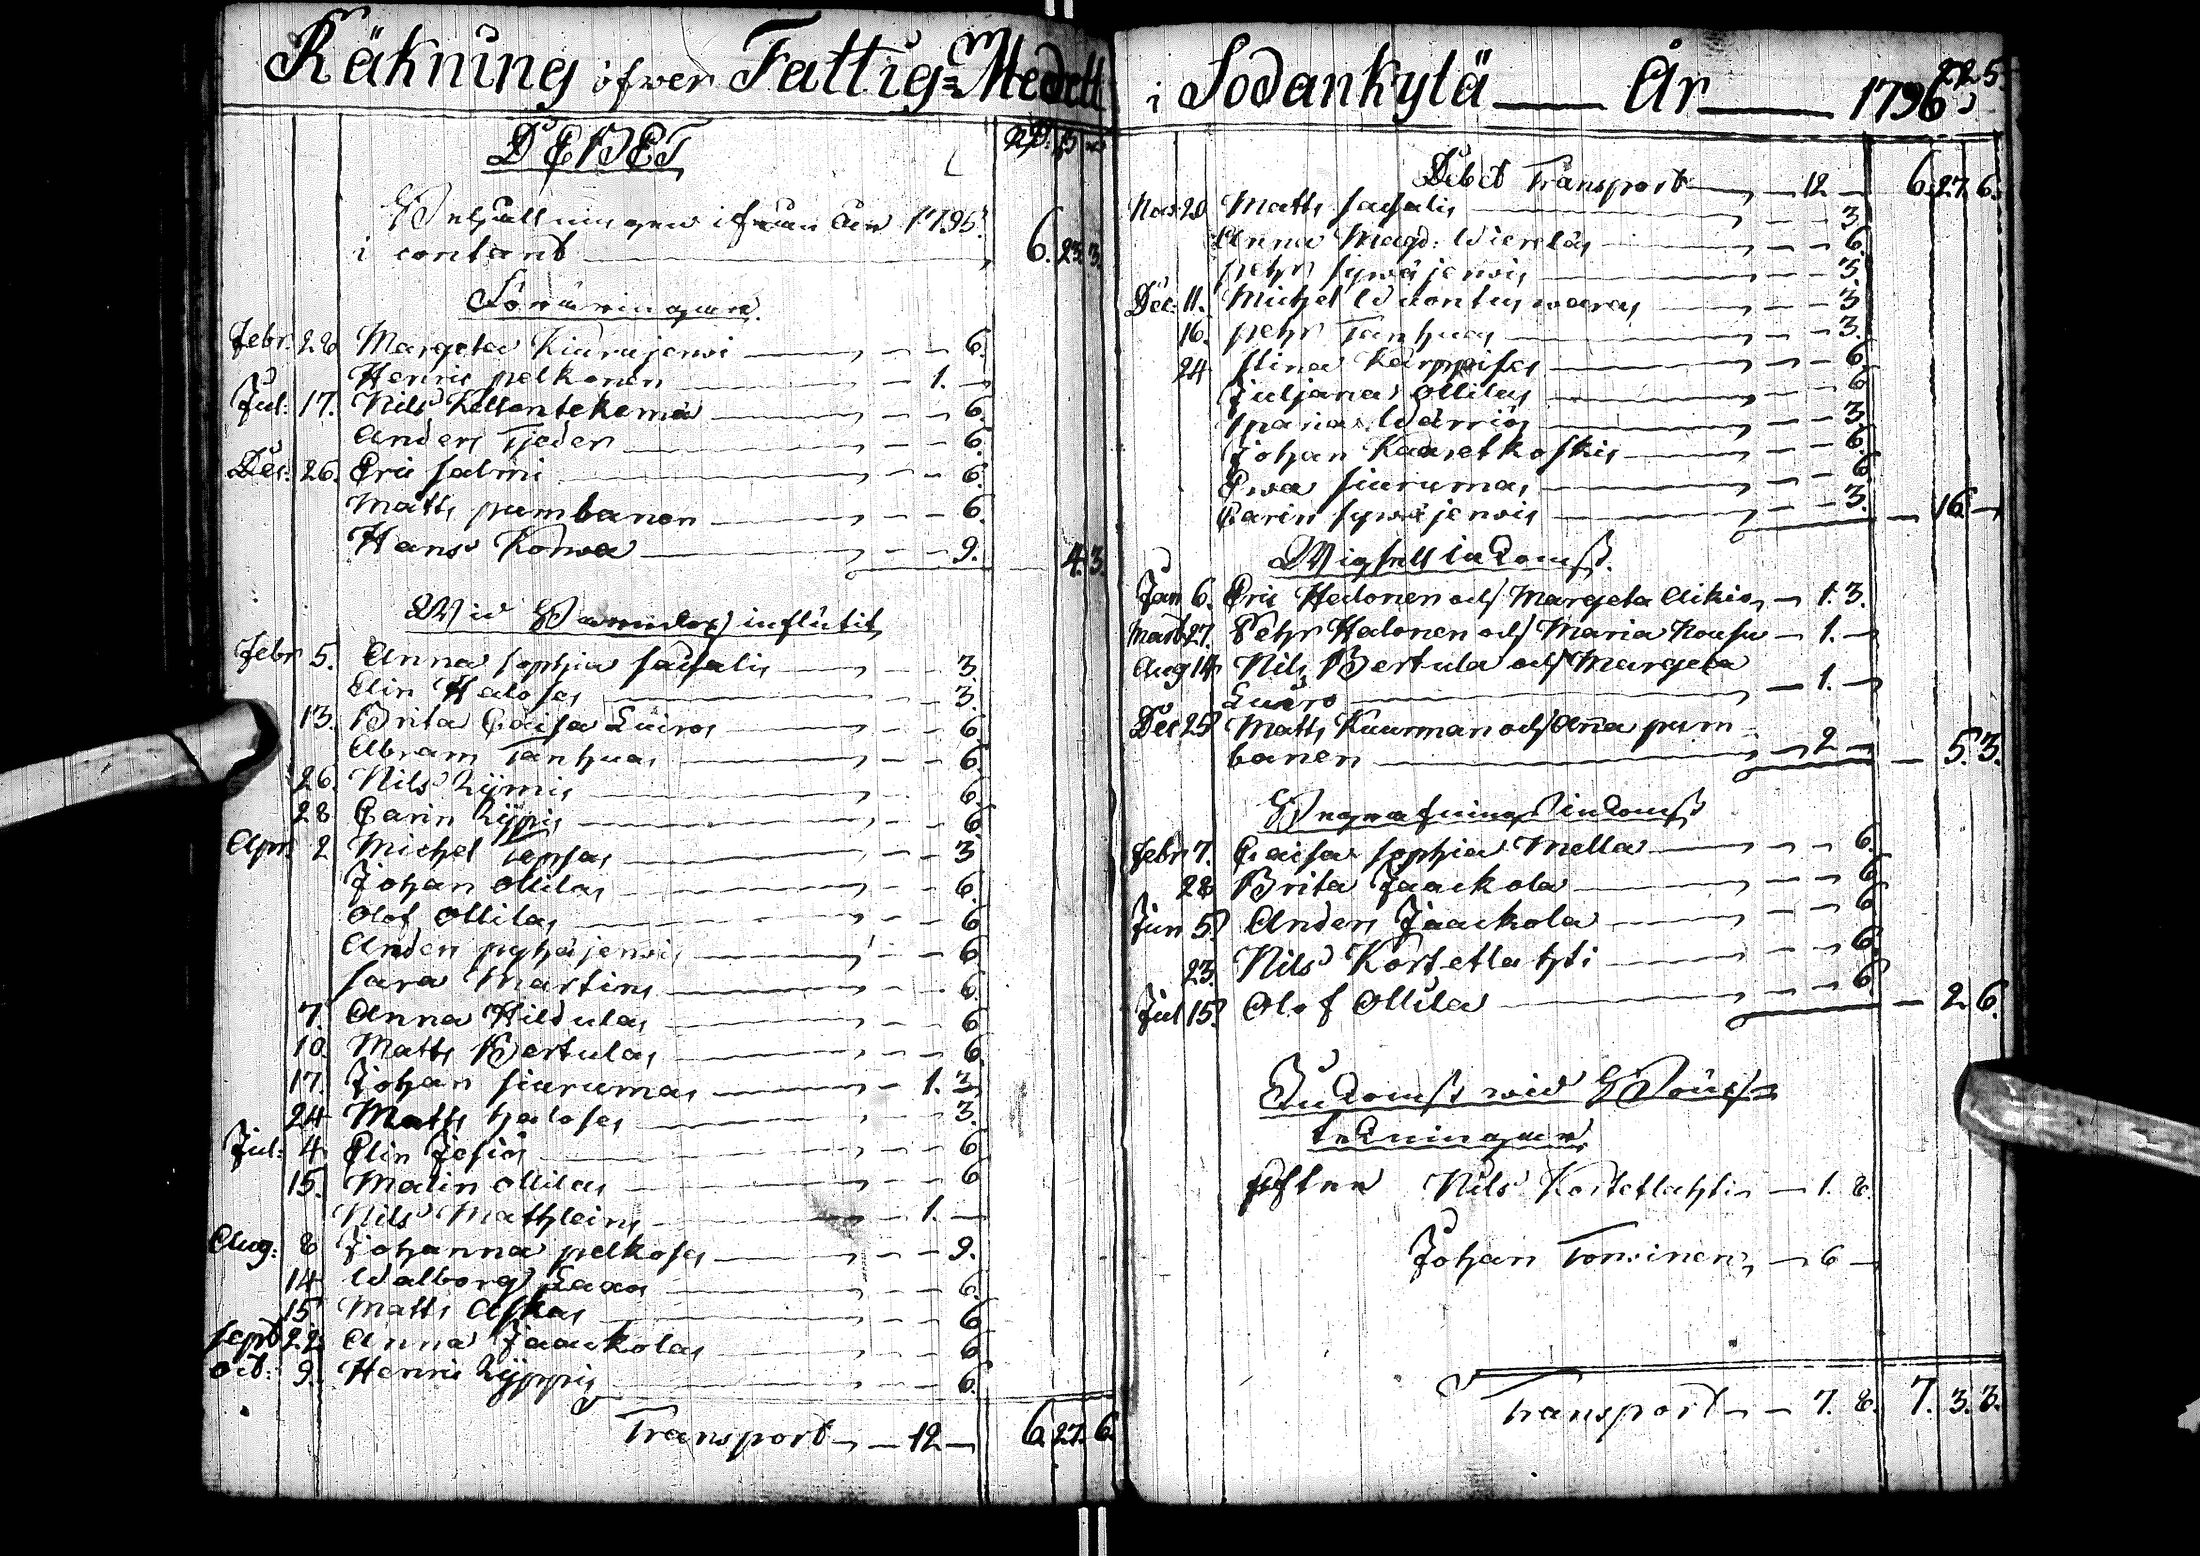 Räkning öfwer Fattig=Medell
DEBET
Behållningen ifrån År 1795.
i contant — 6. 23. 3.
Föräringar.
Febr. 28 Margeta Kiurujerwi — 6.
Henric pelkonen — 1. —
Jul: 17. Nils Kellontekemä — 6.
Anders Tjeder — 6.
Dec: 26. Eric Salmi — 6.
Matts pumbanen — 6.
Hans Korwa — 9. — 4. 3.
Wid Barndop influtit
Febr 5. Anna Sophia — 3.
Elin Halosas — 3.
13. Brita Caisa Luiros — 6.
Abram Tanhuas — 6.
26. Nils — 6.
28 Carin — 6.
Apr. 2 Michel — 3
Johan Ollilas — 6.
Olof Ollilas — 6
Anders pyhäjerwis — 6
Sara Martins — 6.
7. Anna Hildulas — 6
10. Matts Bertulas — 6
17. Johan Siurumas — 1. 3
24 Matts halosas — 3.
Jul: 4. Elin Jesiös — 6
15. Malin Ollilas — 6
Nils Mathleins — 1. —
Aug: 8 Johanna pelkosas — 9.
14 Walborg — 6.
15 Matts Askas — 6
Sept 22 Anna Jaackolas — 6
Oct: 9. Henric — 6.
Transport — 12 — 6. 27. 6.
i Sodankylä — År — 1796.
225.
Debet Transport — 12 — 6. 27. 6.
Nov: 20 Matts — 3
Anna Magd: Wierelas — 6.
pehr Sywäjerwis — 3.
Dec: 11. Michel Wuontuswaaras — 3
16. pehr Tanhuas — 3.
24 Stina Karppisas — 6.
Juljana Ollilas — 6
Maria Wärriös — 3.
Johan Kaaretkoskis — 6.
Ewa Siurumas — 6
Carin Sywäjerwis — 3. — 16 —
Wigsell inkomst.
Jan 6. Eric Halonen och Margeta Aikio — 1. 3.
Mart 27. Pehr Halonen och Maria Kousu — 1. —
Aug 14 Nils Bertula och Margeta
Luiro — 1. —
Dec 25 Matts Kuurman och Anna pum-
banen — 2 — 5. 3.
Begrafnings inkomst
Febr 7. Caisa Sophia Mella — 6.
28 Brita Jaackola — 6
Jun 5. Anders Jaackola — 6
23. Nils Kortetlahti — 6
Jul 15. Olof Ollila — 6. — 2. 6.
Inkomst wid Boups-
tekningar
Efter Nils Kortetlahti — 1. 8.
Johan Torninen — 6 —
Transport — 7. 8. 7. 3. 3.